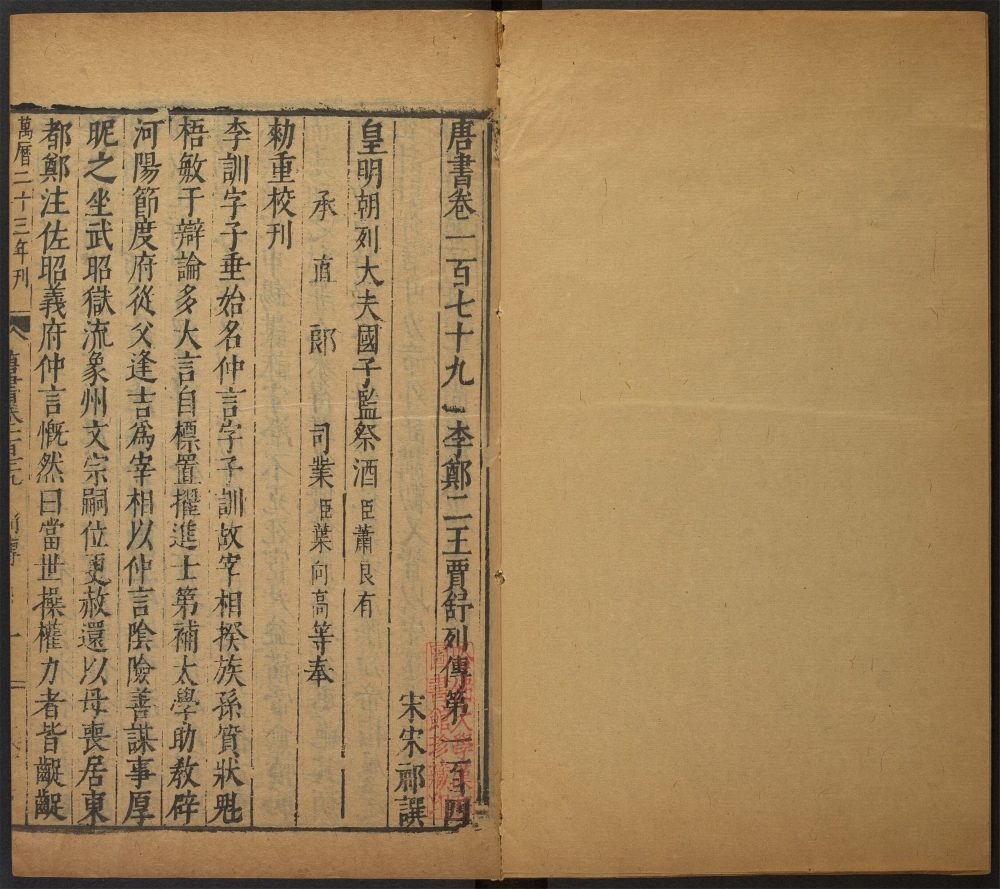 唐書卷一百七十九 李鄭二王賈舒列傳第一百四
宋宋祁譔
皇明朝列大夫國子監祭酒臣蕭良有
承直郎 司業臣葉向高等奉
勑重校刊
李訓字子垂始名仲言字子訓故宰相揆族孫質狀魁
梧敏于辯論多大言自標置擢進士第補太學助教辟
河陽節度府從父逢吉爲宰相以仲言陰險善謀事厚
昵之坐武昭獄流象州文宗嗣位更赦還以母喪居東
都鄭注佐昭義府仲言慨然曰當世操權力者皆齪齪
萬曆二十三年刊
唐書卷一百七十九 列傳 一